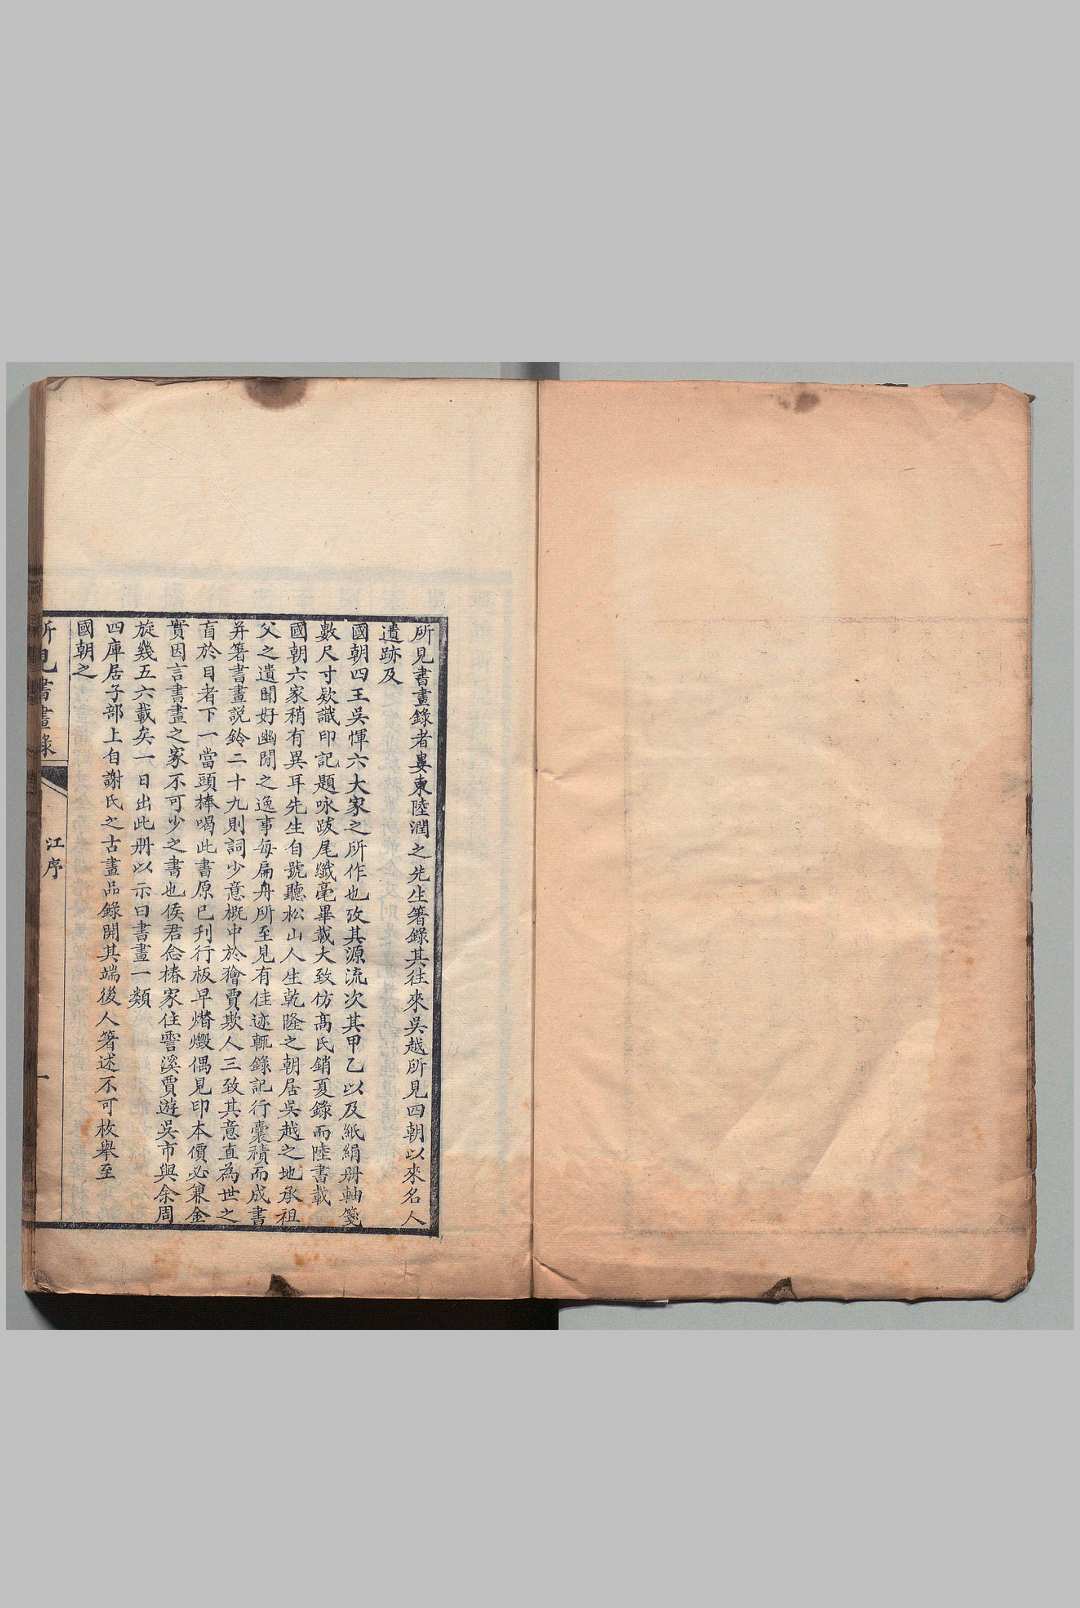 所見書畫錄者婁東陸潤之先生箸錄其往來吳越所見四朝以來名人
遺跡及
國朝四王吳惲六大家之所作也攷其源流次其甲乙以及紙絹册軸箋
數尺寸欵識印記題咏跋尾纖毫畢載大致仿高氏銷夏錄而陸書載
國朝六家稍有異耳先生自號聽松山人生乾隆之朝居吳越之地承祖
父之遺聞好幽閒之逸事每扁舟所至見有佳迹輒錄記行囊積而成書
并箸書畫說鈴二十九則詞少意概中於獪賈欺人三致其意直為世之
盲於目者下一當頭棒喝此書原已刊行板早熸燬偶見印本價必兼金
實因言書畫之家不可少之書也侯君念椿家住霅溪賈遊吳市與余周
旋幾五六載矣一日出此册以示曰書畫一類
四庫居子部上自謝氏之古畫品錄開其端後人箸述不可枚舉至
國朝之
所見書畫錄
江序
一